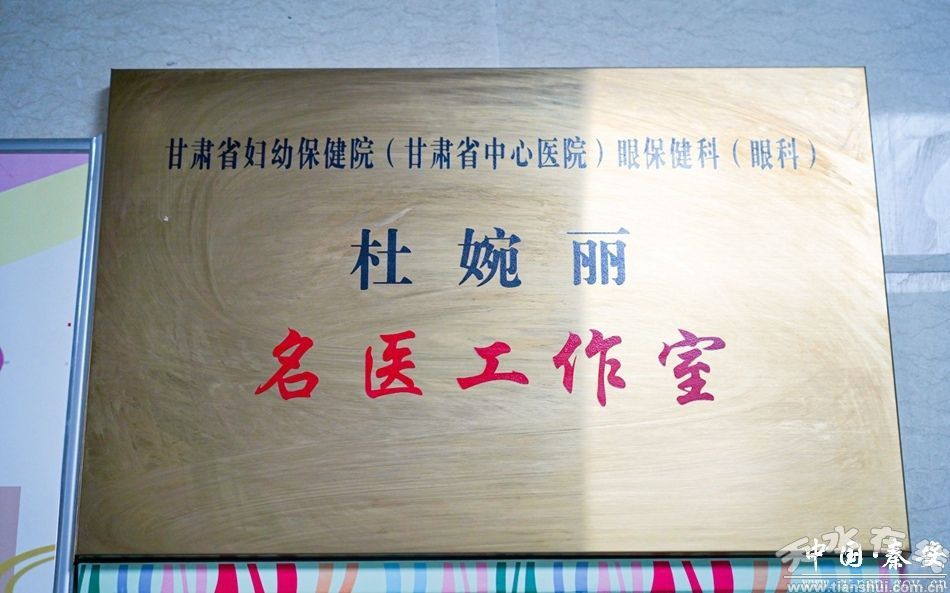 甘肃省妇幼保健院（甘肃省中心医院）眼保健科（眼科）
杜婉丽
名医工作室
中国·秦安
www.tianshui.com.cn